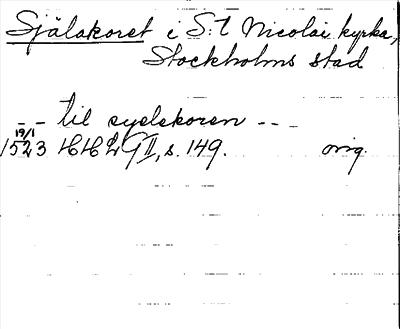 Själakoret i S:t Nicolai kyrka,
Stockholms stad
-- til syelekoren ---
19/1
1523 HH2 GII, s. 149. orig.